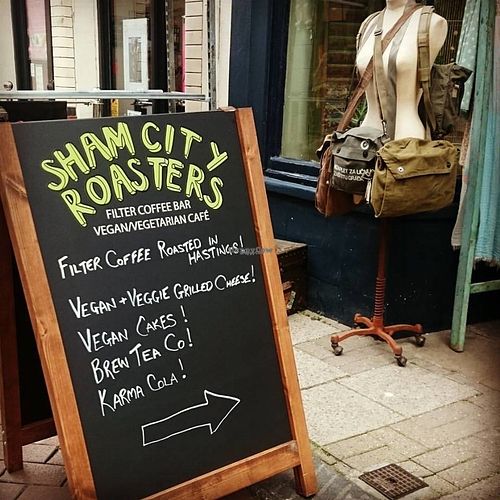 SHAM CITY
ROASTERS
FILTER COFFEE BAR
VEGAN/VEGETARIAN CAFÉ
FILTER COFFEE ROASTED IN
HASTINGS!
VEGAN + VEGGIE GRILLED CHEESE!
VEGAN CAKES!
BREW TEA CO!
KARMA COLA!